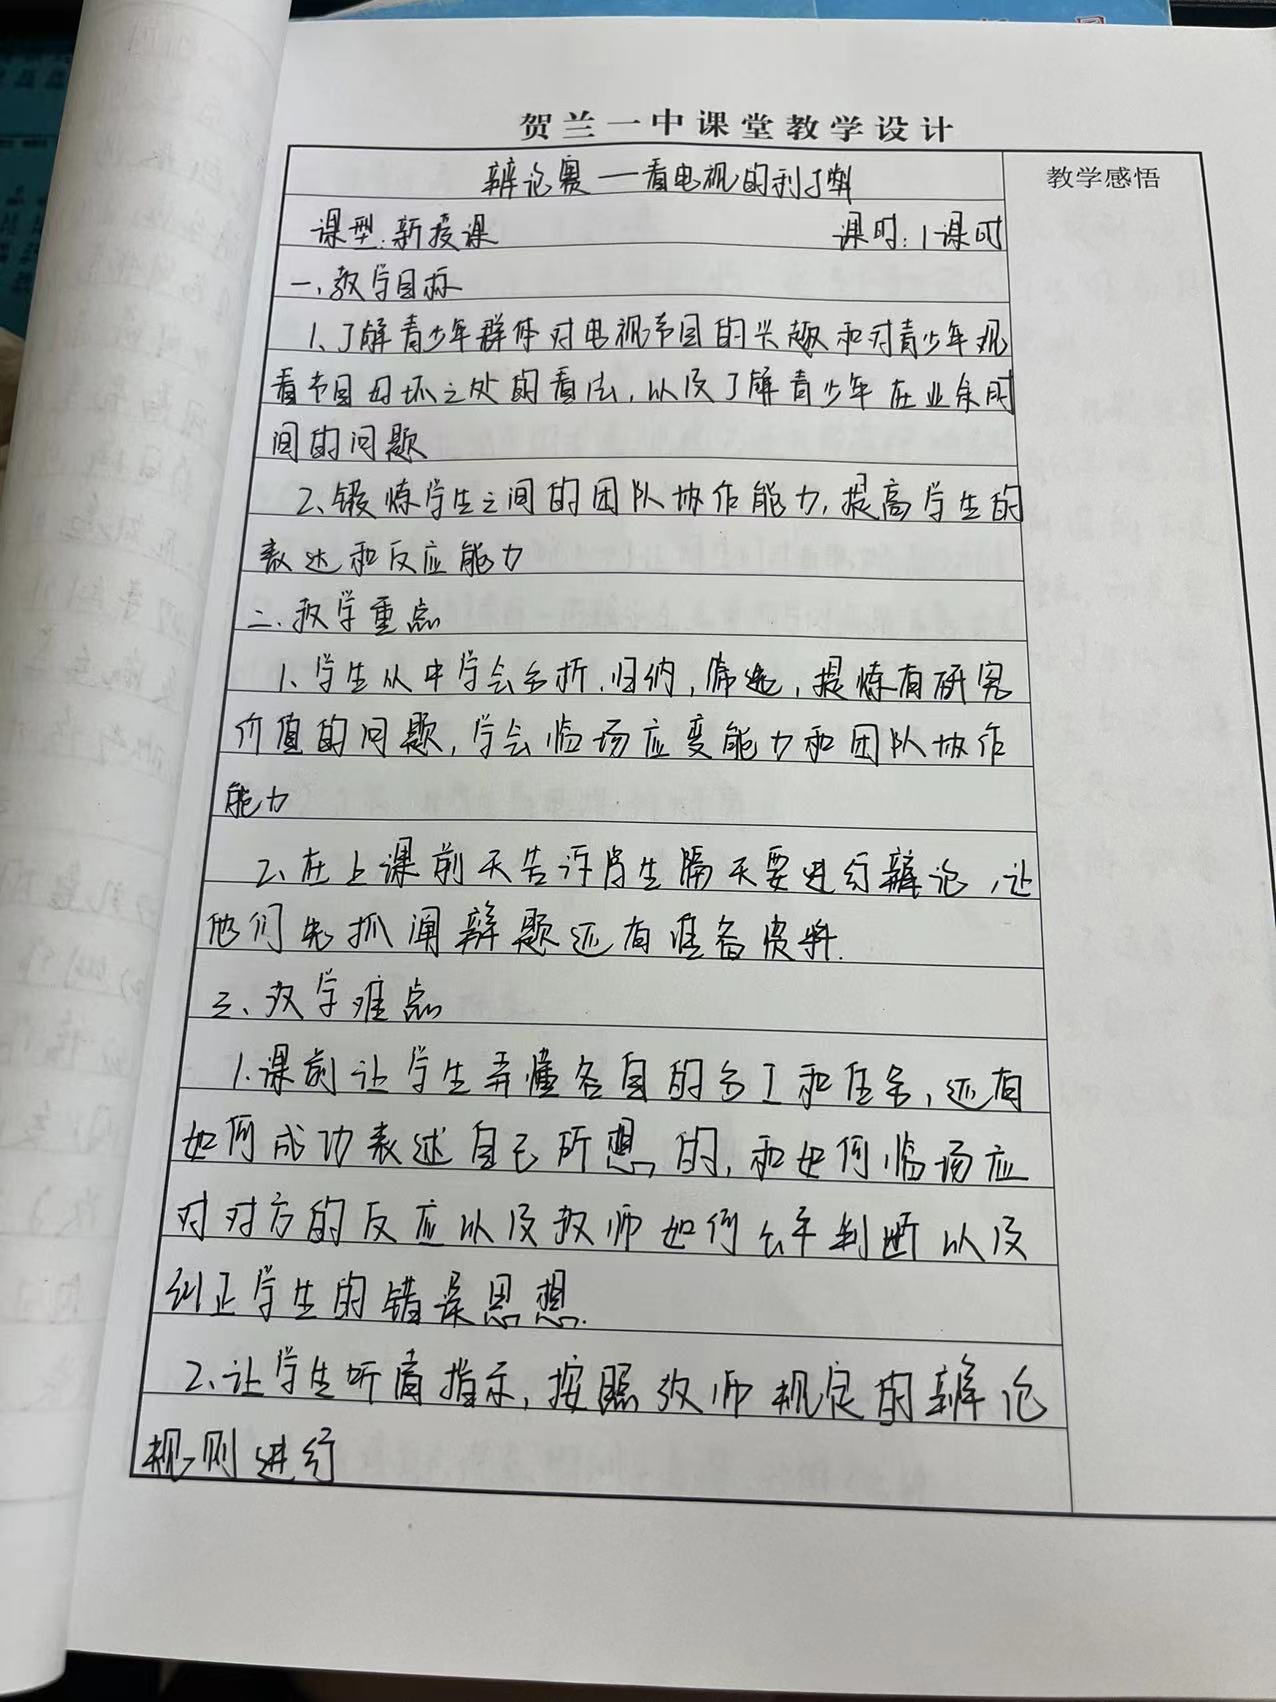 贺兰一中课堂教学设计
辩论赛——看电视的利与弊
教学感悟
课型:新授课 课时:1课时
一、教学目标
1、了解青少年群体对电视节目的兴趣和对青少年观
看节目好坏之处的看法,以及了解青少年在业余时
间的问题
2、锻炼学生之间的团队协作能力,提高学生的
表达和反应能力
二、教学重点
1、学生从中学会分析、归纳,筛选,提炼有研究
价值的问题,学会临场应变能力和团队协作
能力
2、在上课前天告诉学生隔天要进行辩论,让
他们先抓阄辩题还有准备资料.
三、教学难点
1.课前让学生弄懂各自的分工和任务,还有
如何成功表述自己所想的,和如何临场应
对对方的反应以及教师如何公平判断以及
纠正学生的错误思想.
2、让学生听甫指示,按照教师规定的辩论
规则进行